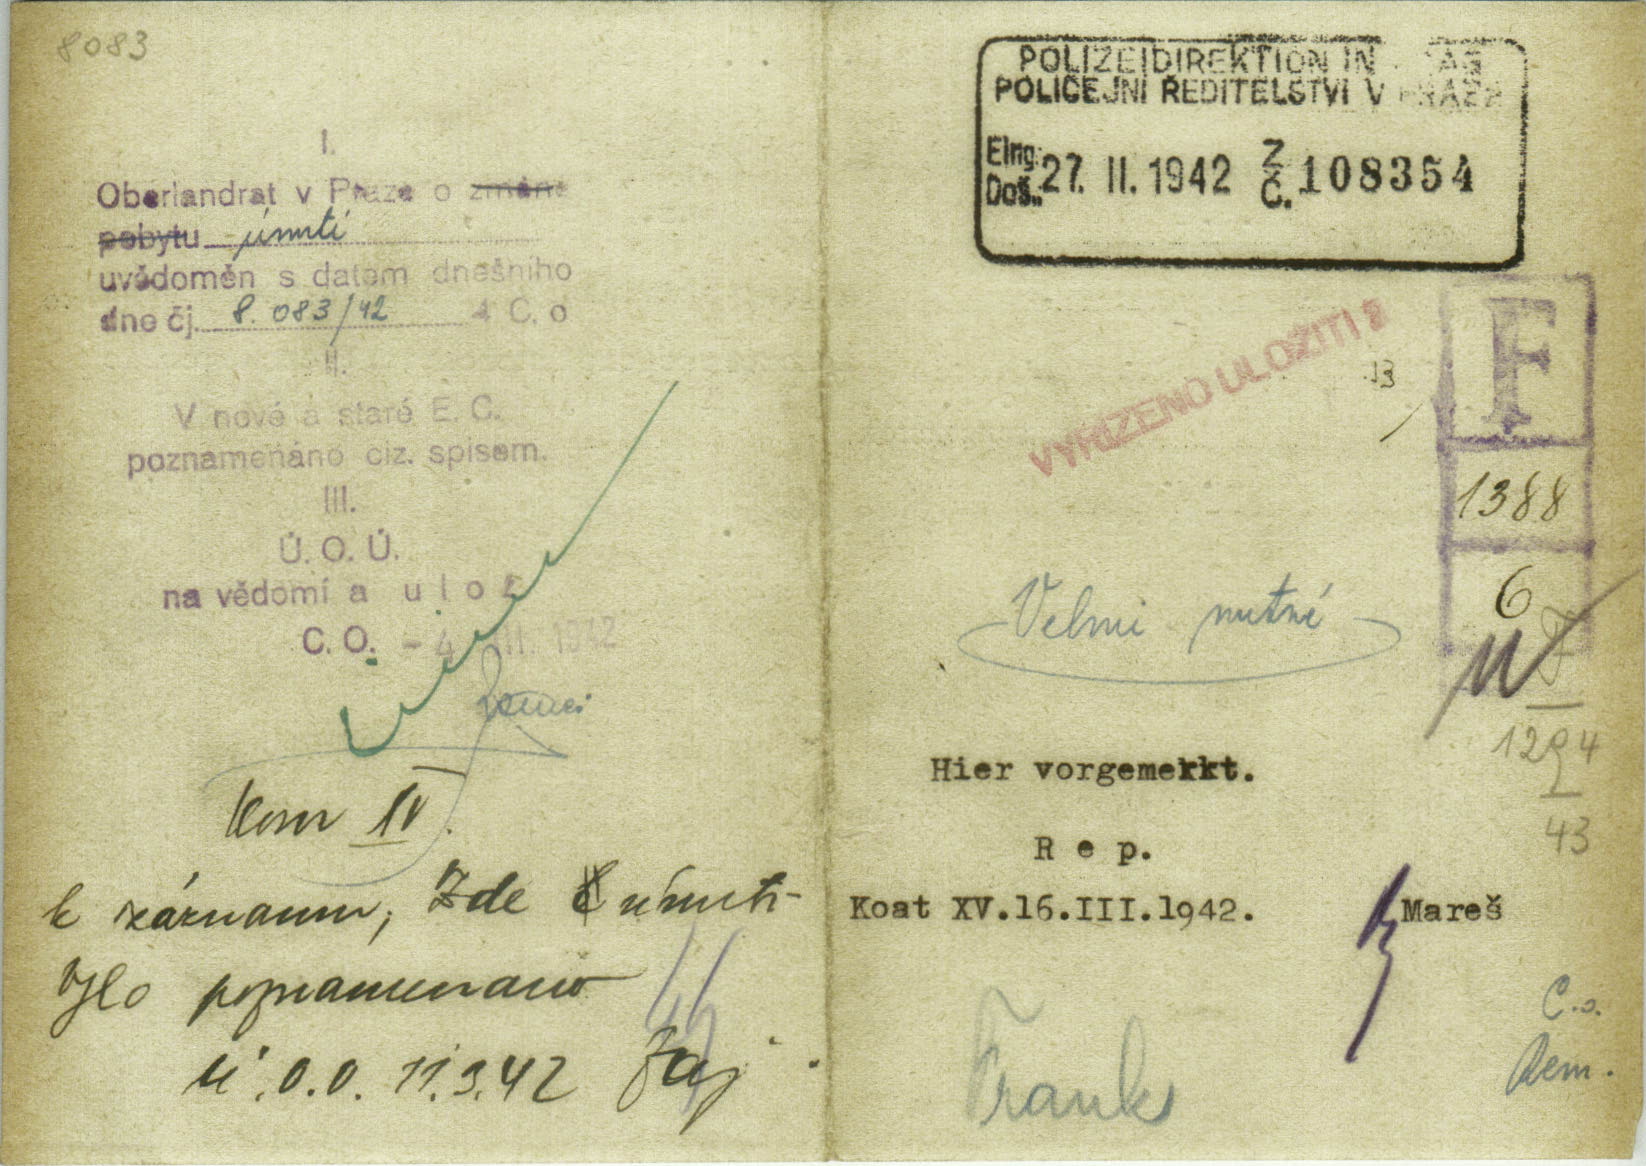 8083
I.
Oberlandrat v Praze o změně
pobytu úmrtí
uvědoměn s datem dnešního
dne čj. 8.083/42 4 C. o
II.
V nové a staré E. C.
poznamenáno ciz. spisem.
III.
Ú. O. Ú.
na vědomí a u l o ž
C. O. - 4. III. 1942
Kom IV.
k záznamu, Zde úmrtí
bylo poznamenáno
ú.o.o. 11.3.42
POLIZEIDIREKTION IN PRAG
POLICEJNÍ ŘEDITELSTVÍ V PRAZE
Eing.
Doš.: 27. II. 1942 Z Č. 108354
VYŘÍZENO ULOŽITI
13
F
1388
6
Velmi nutné
1294
43
Hier vorgemerkt.
R e p.
Koat XV.16.III.1942. Mareš
Frank
C.o.
Rem.